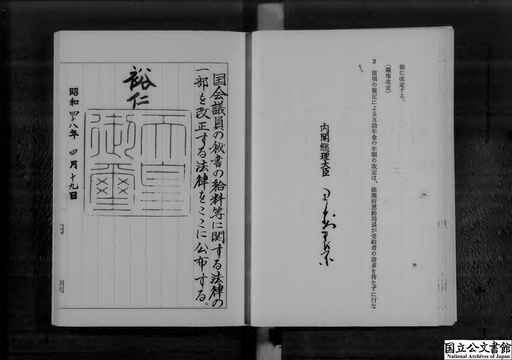 額に改定する。
(職権改定)
3 前項の規定による互助年金の年額の改定は、総理府恩給局長が受給者の請求を待たずに行な
う。
内閣総理大臣
国会議員の秘書の給料等に関する法律の
一部を改正する法律をここに公布する。
裕仁
天皇
御璽
昭和四十八年四月十九日
国立公文書館
National Archives of Japan